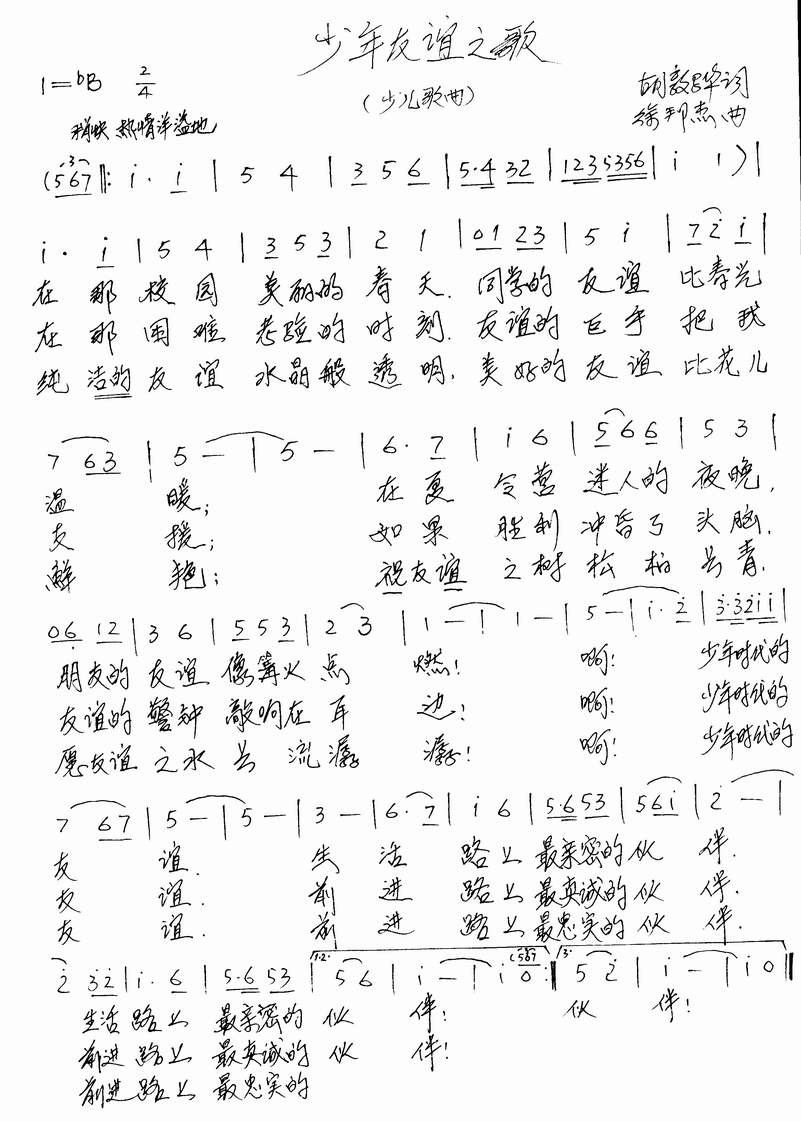 少年友谊之歌
1=bB 2/4
(少儿歌曲)
胡敦骅词
徐邦杰曲
稍快 热情洋溢地
(567 ‖: i· i | 5 4 | 3 5 6 | 5·4 32 | 123 5356 | i 1 ) |
i· i | 5 4 | 3 5 3 | 2 1 | 01 23 | 5 i | 7 2 i |
在那校园 美丽的春天. 同学的友谊 比春光
在那困难 考验的时刻. 友谊的巨手 把我
纯洁的友谊 水晶般透明. 美好的友谊 比花儿
7 63 | 5 — | 5 — | 6· 7 | i 6 | 5 6 6 | 5 3 |
温暖; 在夏令营 迷人的夜晚,
支援; 如果胜利 冲昏了头脑.
鲜艳; 祝友谊之树 松柏长青.
06 12 | 3 6 | 5 5 3 | 2 3 | 1 — | 1 — | 5 — | i· 2 | 3·3 2i i |
朋友的友谊 像篝火点燃! 啊! 少年时代的
友谊的警钟 敲响在耳边! 啊! 少年时代的
愿友谊之水 长流潺潺! 啊! 少年时代的
7 67 | 5 — | 5 — | 3 — | 6· 7 | i 6 | 5·6 53 | 5 6 i | 2 — |
友谊. 生活路上 最亲密的伙伴.
友谊. 前进路上 最真诚的伙伴.
友谊. 前进路上 最忠实的伙伴.
2 32 | i· 6 | 5·6 53 | 1·2. 5 6 | i — | i 0 (567 :‖ 3· 5 2 | i — | i 0 ‖
生活路上 最亲密的伙伴! 伙伴!
前进路上 最真诚的伙伴!
前进路上 最忠实的